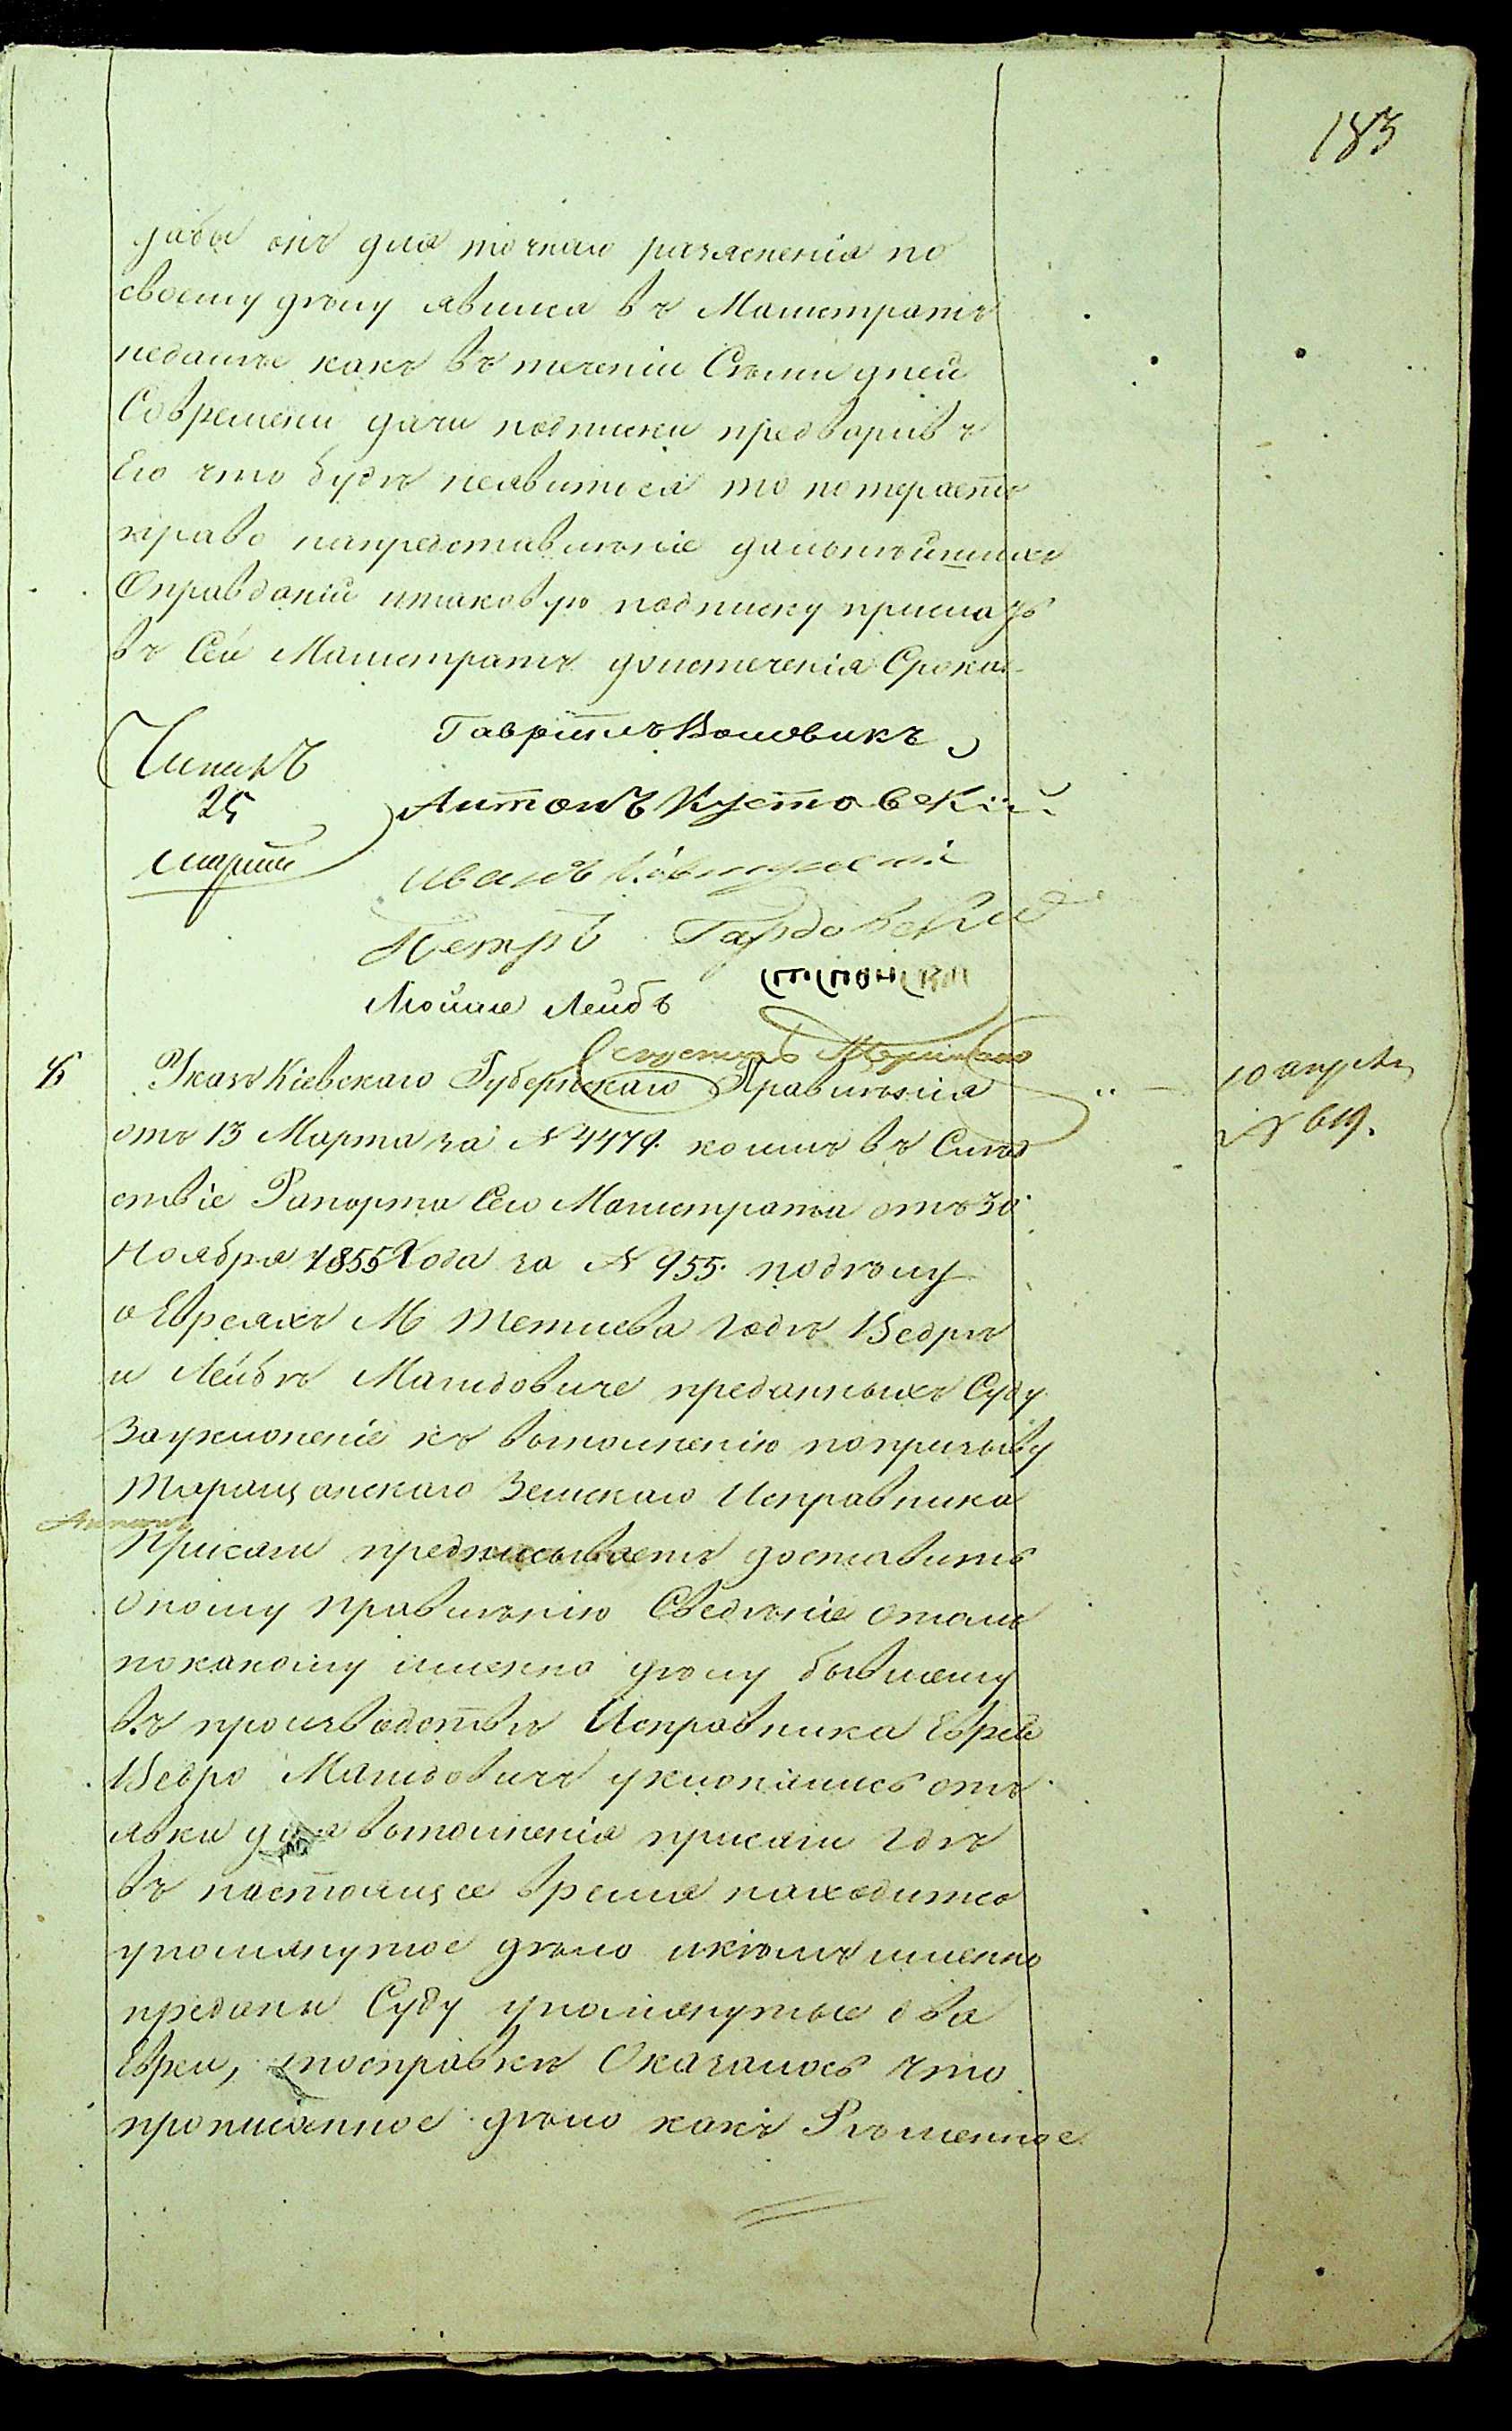 183
дабы онъ для точнаго разъясненія по
своему дѣлу явился въ Магистратъ
недалѣе какъ въ теченіи Съми дней
Современи дачи подписки предваривъ
Его что будѣ неявится то потеряетъ
право напредставлѣніе дальнѣйшихъ
Оправданій итаковую подписку прислать
въ Сей Магистратъ доистеченія Срока.
Гавріилъ Воловикъ
Читалъ
25
Антонъ Кустовскій.
Иванъ
Петръ Гардовскій
Мойше Лейбъ
Указъ Кіевскаго Губернскаго Правлѣнія
10 апрѣля
отъ 13 Марта за № 4479. коимъ въ Слѣд
№ 619.
ствіе Рапорта Сего Магистрата отъ 30
Ноября 1855 Года за № 955. подѣлу
о Евреяхъ М Тетіева Годѣ Ведрѣ
и Лейбѣ Магидовиче преданныхъ Суду
Зауклоненіе къ выполненію попризыву
Таращанскаго Земскаго Исправника
Присяги предписываетъ доставить
оному правлѣнію Сведѣніе отомъ
покакому именно дѣлу бывшему
въ производствѣ Исправника Евреи
Ведро Магидовичъ уклонялись отъ
явки для выполненія присяги гдѣ
въ настоящее время находится
упомянутое дѣло икѣмъ именно
преданы Суду упомянутые два
Евреи, посправкѣ Оказалось что
прописанное дѣло какъ Рѣшенное